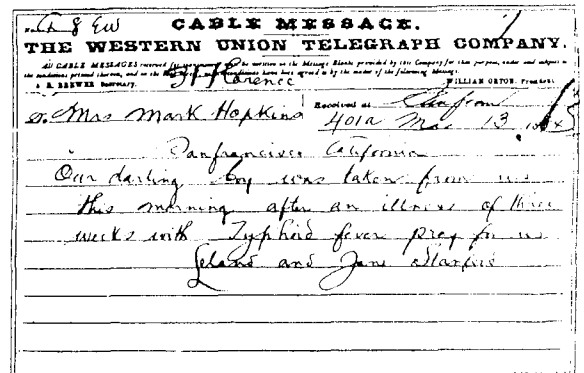 CABLE MESSAGE.
THE WESTERN UNION TELEGRAPH COMPANY.
ALL CABLE MESSAGES received for transmission must be written on the Message Blanks provided by this Company for that purpose, under and subject to
the conditions printed thereon, and on the back hereof, which conditions have been agreed to by the sender of the following Message.
A. R. BREWER Secretary. WILLIAM ORTON, President.
Florence
To Mrs Mark Hopkins Received at San Fran
401a Mar 13, 1884
Sanfrancisco California
Our darling boy was taken from us
this morning after an illness of three
weeks with Typhoid fever pray for us
Leland and Jane Stanford